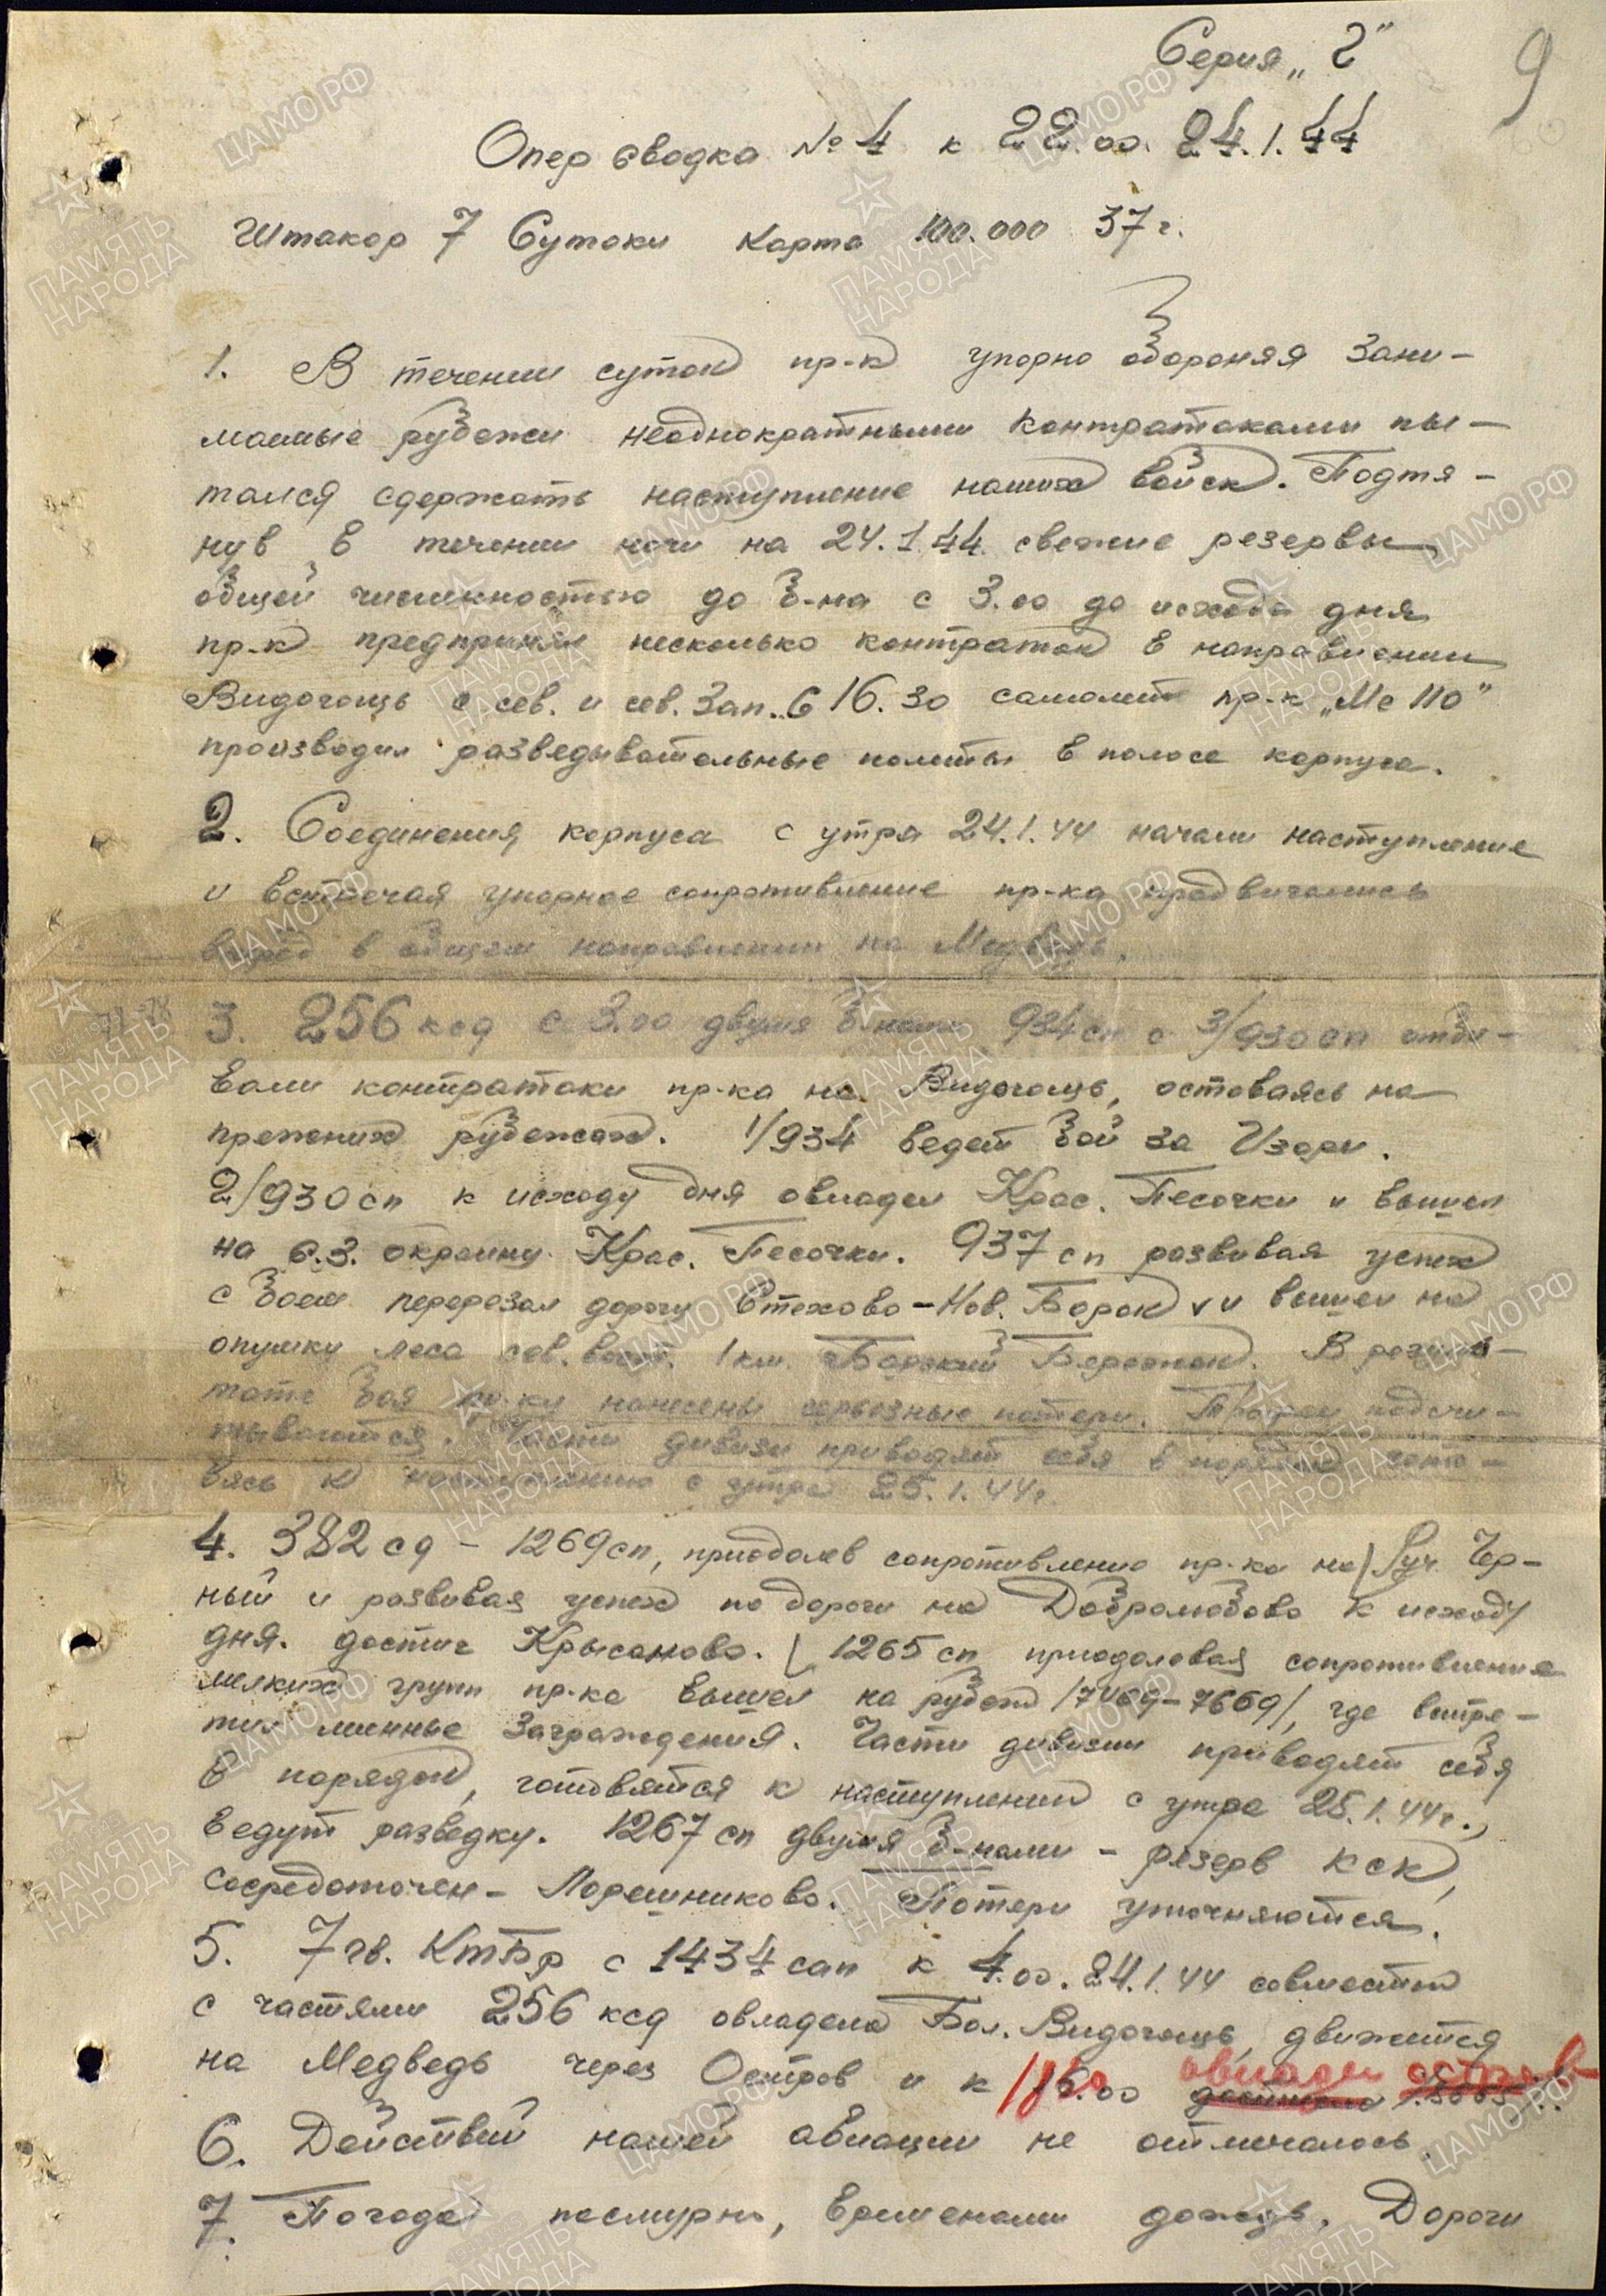 Серия „Г"
9
Опер сводка № 4 к 22.00. 24.1.44
Штакор 7 Сутоки карта 100.000 37 г.
1. В течении суток пр-к упорно обороняя зани-
маемые рубежи неоднократными контратаками пы-
тался сдержать наступление наших войск. Подтя-
нув в течении ночи на 24.1.44 свежие резервы
общей численностью до б-на с 3.00 до исхода дня
пр-к предпринял несколько контратак в направлении
Видогощь с сев. и сев. зап. в 16.30 самолет пр-к „Ме 110"
производил разведывательные полеты в полосе корпуса.
2. Соединения корпуса с утра 24.1.44 начали наступление
и встречая упорное сопротивление пр-ка продвигались
вперед в общем направлении на Медведь.
3. 256 ксд с 3.00 двумя б-нами 934 сп с 3/930 сп отби-
вали контратаки пр-ка на Видогощь, оставаясь на
прежних рубежах. 1/934 ведет бой за Изори.
2/930 сп к исходу дня овладел Крас. Песочки и вышел
на с.з. окраину Крас. Песочки. 937 сп развивая успех
с боем перерезал дорогу Стехово - Нов. Борок и вышел на
опушку леса сев. вост. 1 км. Борский Бережок. В резуль-
тате боя пр-ку нанесены серьезные потери. Трофеи подсчи-
тываются. Части дивизи приводят себя в порядок гото-
вясь к наступлению с утра 25.1.44 г.
4. 382 сд - 1269 сп, приодолев сопротивление пр-ка на Руч. Чер-
ный и развивая успех по дороги на Добролюбово к исходу
дня. достиг Крысаново. 1265 сп приодолевая сопротивление
мелких групп пр-ка вышел на рубеж /7469-7669/, где встре-
тил минные заграждения. Части дивизии приводят себя
в порядок, готовятся к наступлению с утра 25.1.44 г.,
ведут разведку. 1267 сп двумя б-нами - резерв кск,
сосредоточен - Лорешниково. Потери уточняются.
5. 7 гв. КтБр с 1434 сап к 4.00. 24.1.44 совместно
с частями 256 ксд овладела Бол. Видогощь, движется
на Медведь через Остров и к 16.00 овладел остров
6. Действий нашей авиации не отмечалось.
7. Погода пасмурно, временами дождь. Дороги